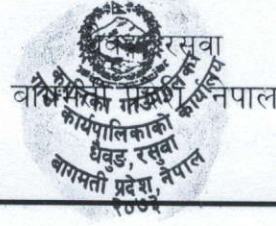 रसुवा
बागमती प्रदेश, नेपाल
कालिका गाउँपालिका
कार्यपालिकाको कार्यालय
धैवुङ, रसुवा
बागमती प्रदेश, नेपाल
२०७३